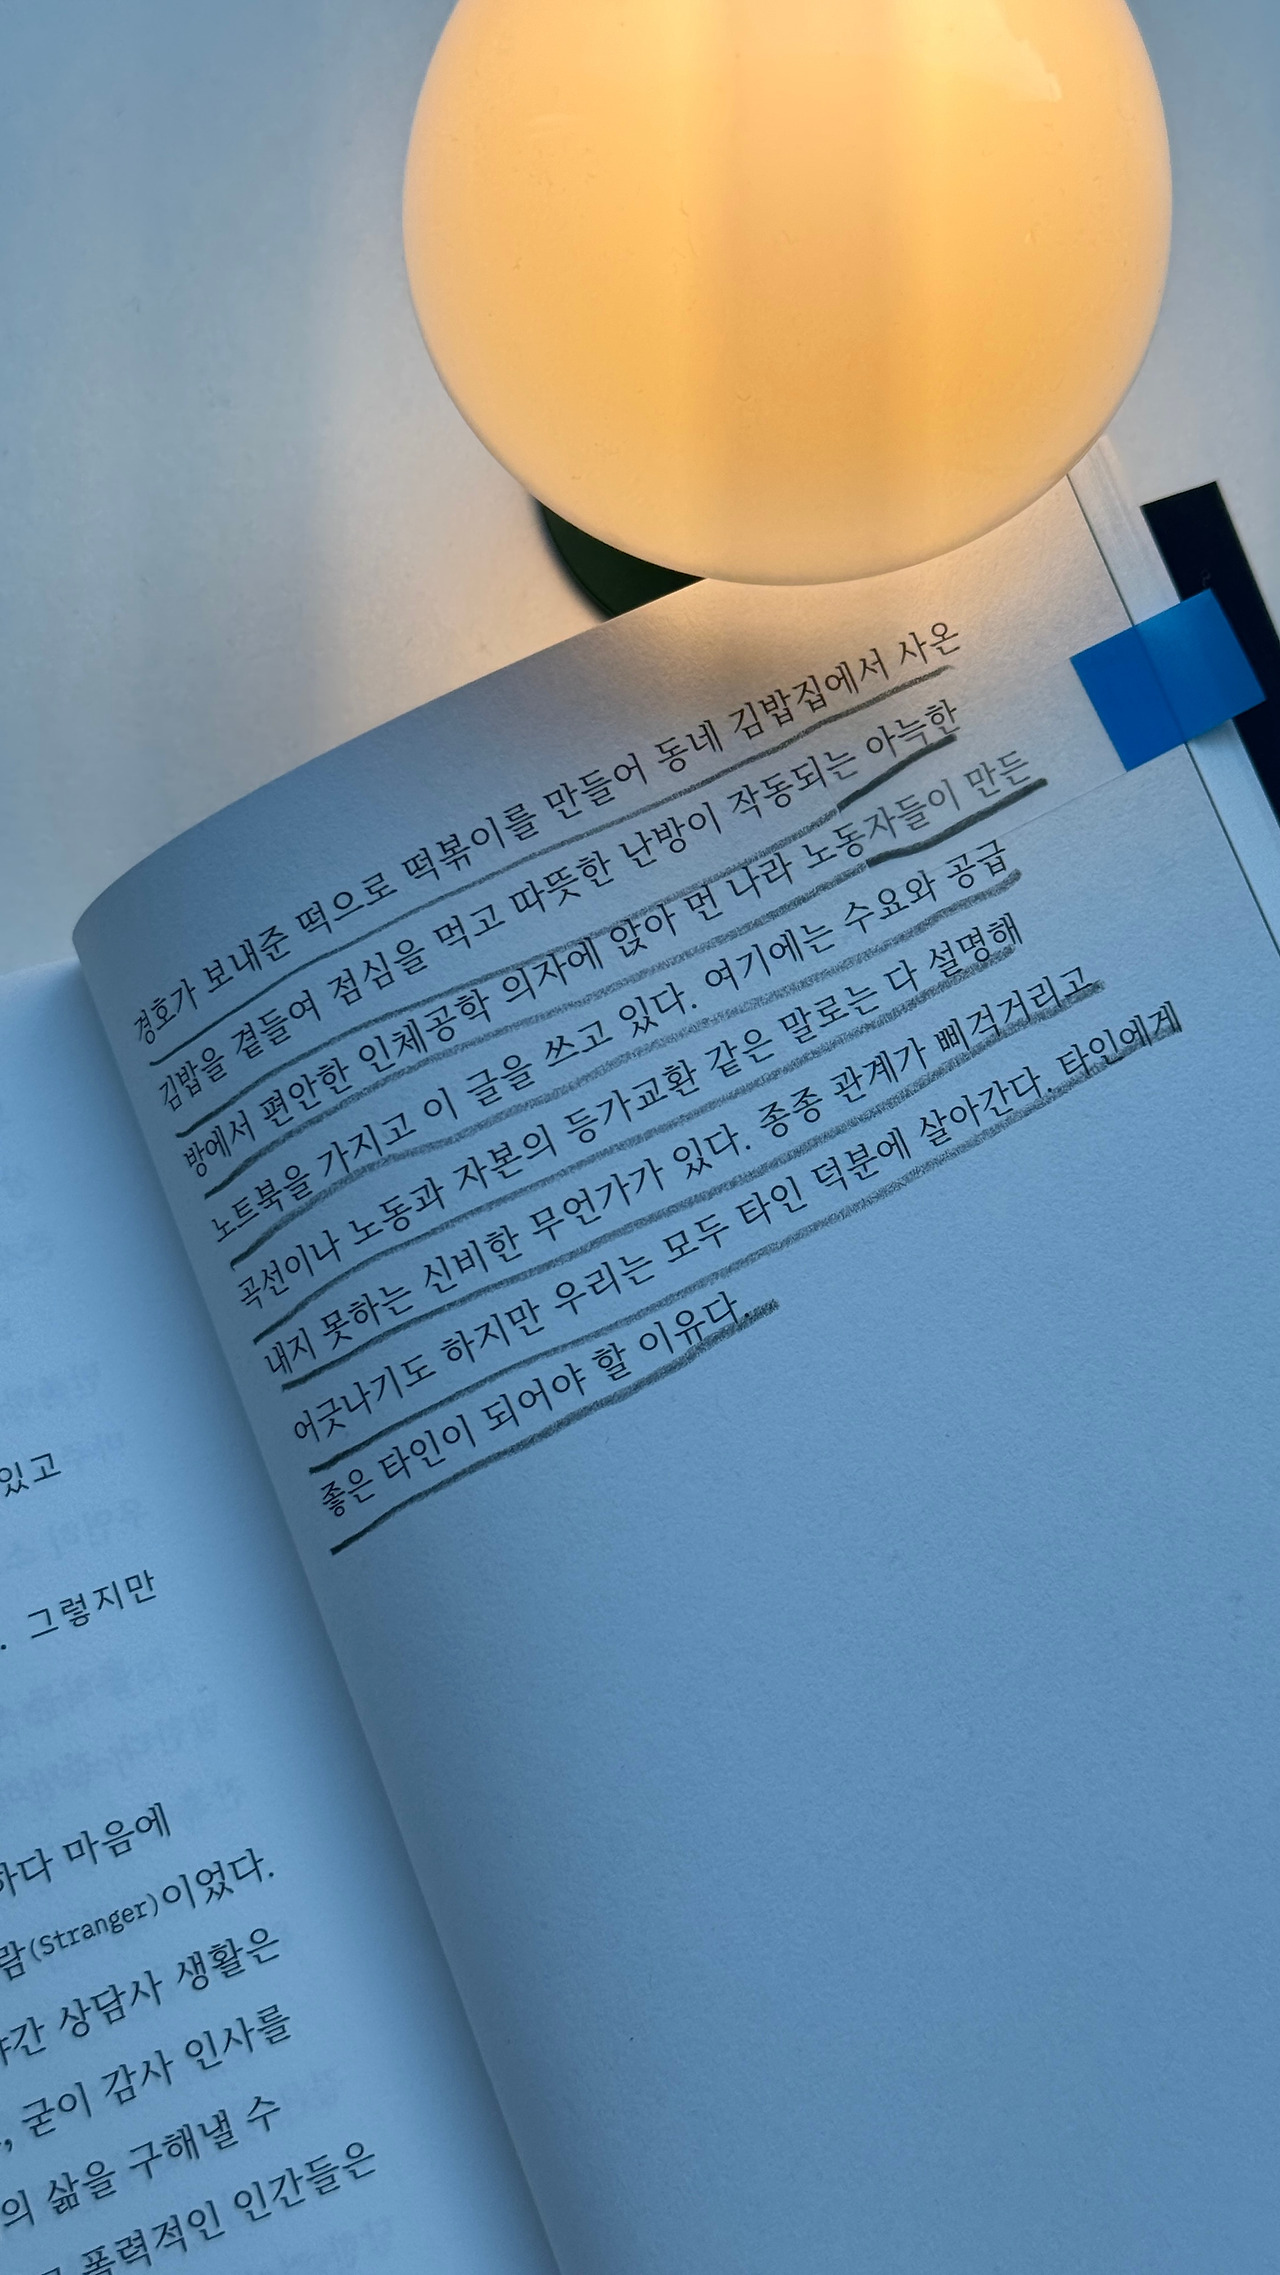 있고
. 그렇지만
하다 마음에
람(Stranger)이었다.
야간 상담사 생활은
, 굳이 감사 인사를
의 삶을 구해낼 수
폭력적인 인간들은
경호가 보내준 떡으로 떡볶이를 만들어 동네 김밥집에서 사온
김밥을 곁들여 점심을 먹고 따뜻한 난방이 작동되는 아늑한
방에서 편안한 인체공학 의자에 앉아 먼 나라 노동자들이 만든
노트북을 가지고 이 글을 쓰고 있다. 여기에는 수요와 공급
곡선이나 노동과 자본의 등가교환 같은 말로는 다 설명해
내지 못하는 신비한 무언가가 있다. 종종 관계가 삐걱거리고
어긋나기도 하지만 우리는 모두 타인 덕분에 살아간다. 타인에게
좋은 타인이 되어야 할 이유다.